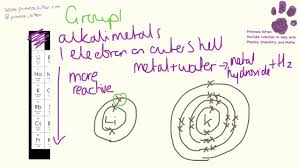 www.primrosekitten.com
@primrose_kitten
Group 1
alkali metals
1 electron on outer shell
metal + water → metal hydroxide + H2
more
reactive
Li
K
Primrose Kitten
YouTube tutorials to help with
Physics, Chemistry and Maths